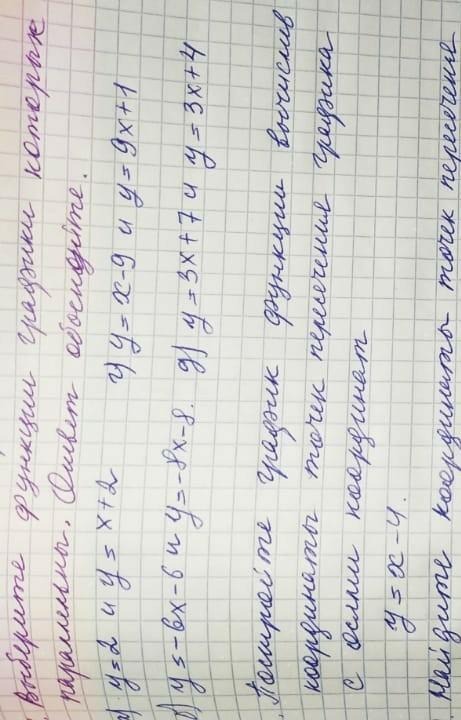 Выберите функции графики которых
параллельны. Ответ обоснуйте.
y=2 и y=x+2 г) y=x-9 и y=9x+1
y=-6x-6 и y=-8x-8. д) y=3x+7 и y=3x+4
Постройте график функции вычислив
координаты точек пересечения графика
с осями координат
y=x-4.
Найдите координаты точек пересечения